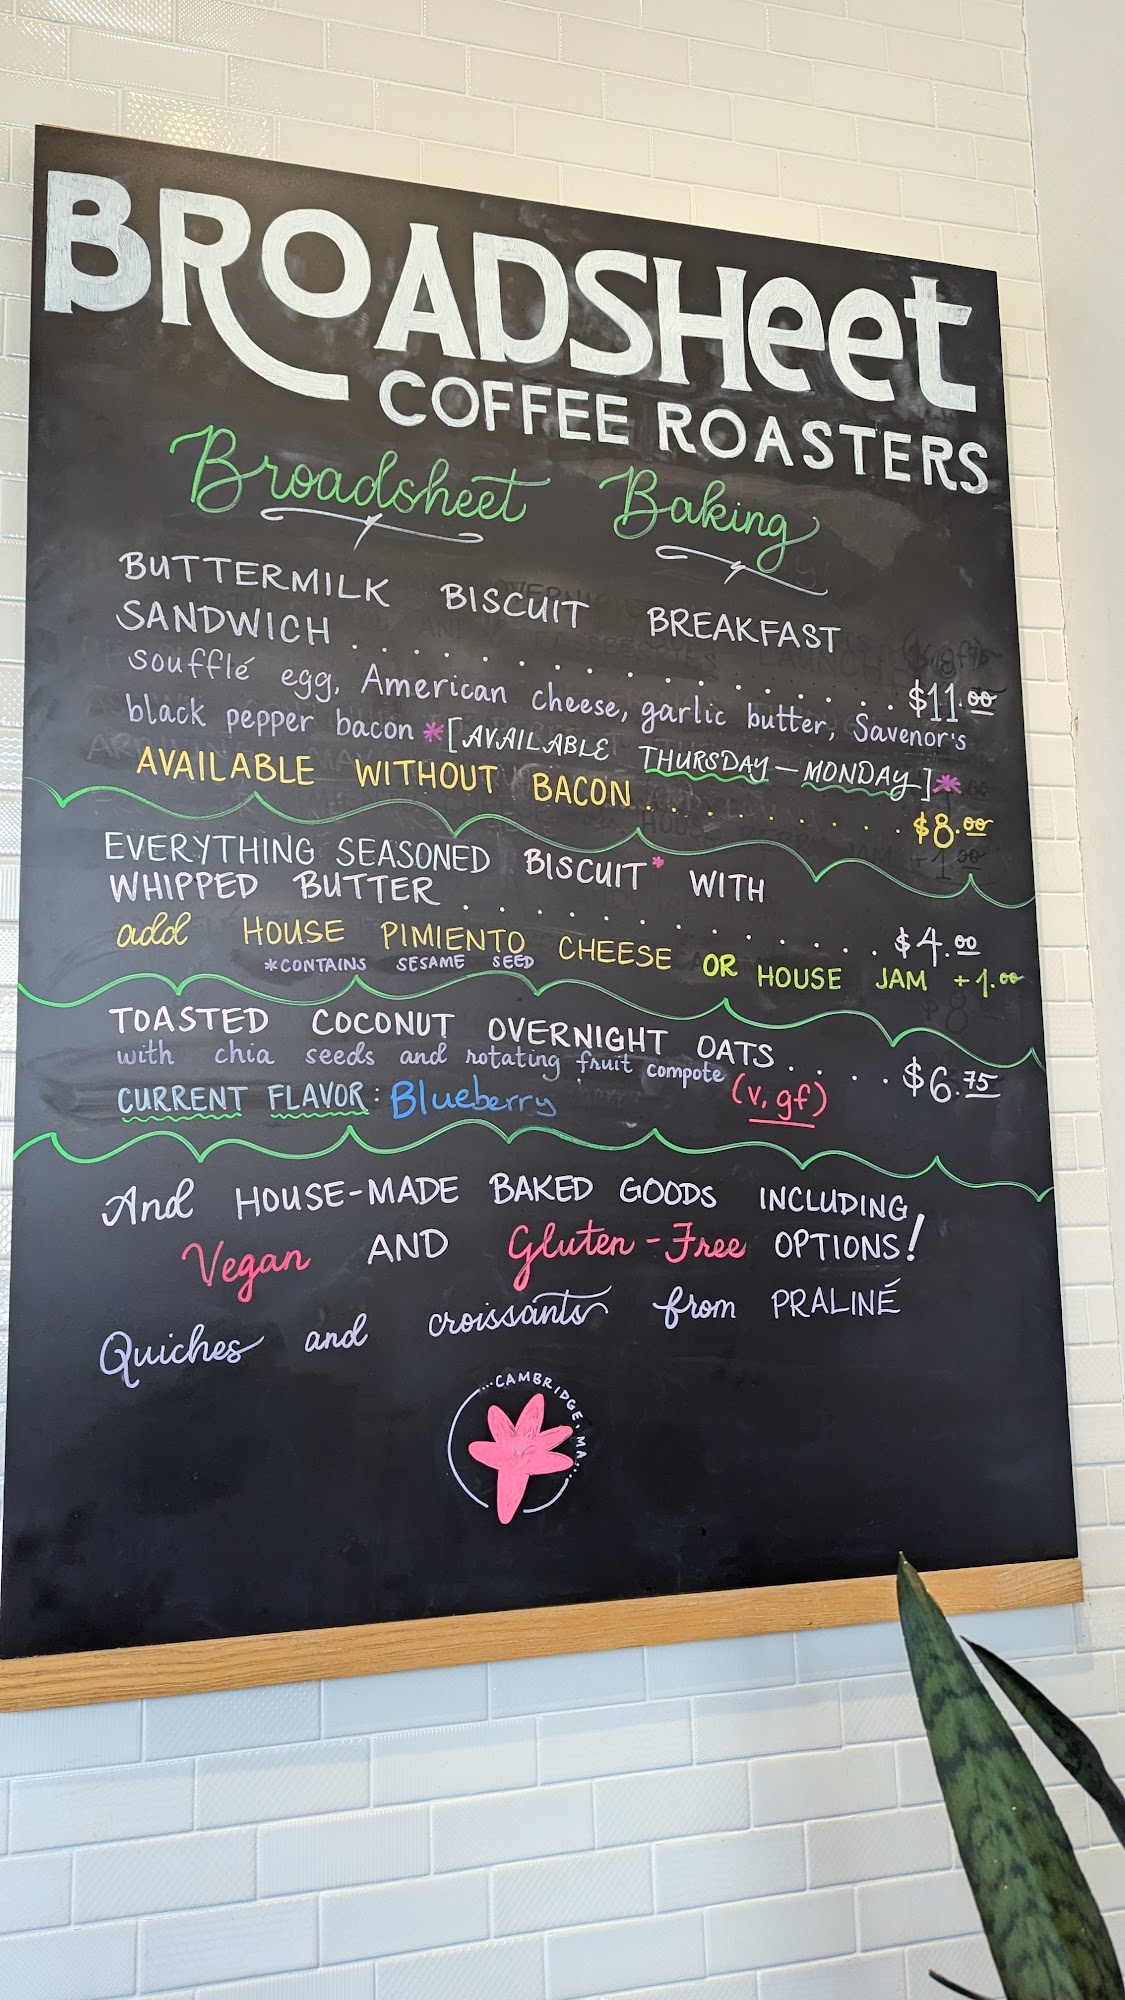 BROADSHeet
COFFEE ROASTERS
Broadsheet Baking
BUTTERMILK BISCUIT BREAKFAST
SANDWICH . . . . . . . . . . . . . . $11.00
soufflé egg, American cheese, garlic butter, Savenor's
black pepper bacon *[AVAILABLE THURSDAY—MONDAY]*
AVAILABLE WITHOUT BACON . . . . . . . . . $8.00
EVERYTHING SEASONED BISCUIT* WITH
WHIPPED BUTTER . . . . . . . . . . . . . . $4.00
add HOUSE PIMIENTO CHEESE OR HOUSE JAM +1.00
*CONTAINS SESAME SEED
TOASTED COCONUT OVERNIGHT OATS . . . . $6.75
with chia seeds and rotating fruit compote (v, gf)
CURRENT FLAVOR: Blueberry
And HOUSE-MADE BAKED GOODS INCLUDING
Vegan AND Gluten-Free OPTIONS!
Quiches and croissants from PRALINÉ
...CAMBRIDGE, MA...